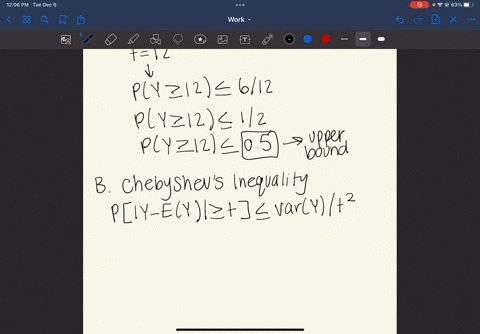 12:06 PM Tue Dec 6
53%
Work
t = 12
↓
P(Y ≥ 12) ≤ 6/12
P(Y ≥ 12) ≤ 1/2
P(Y ≥ 12) ≤ 0.5 → upper bound
B. Chebyshev's Inequality
P[|Y - E(Y)| ≥ t] ≤ Var(Y)/t²